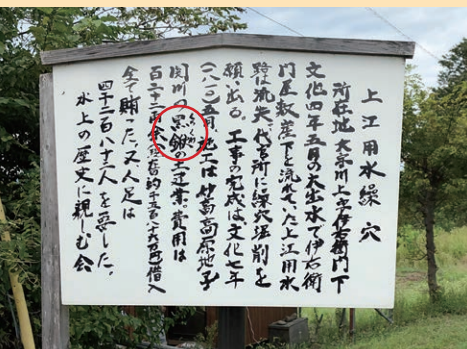 上江用水繰穴
所在地 大字川上字伊右衛門下
文化四年五月の大出水で伊右衛
門屋敷崖下を流れてた上江用水
路は流失、代官所に繰穴堀削を
願い出る。工事の完成は文化七年
五月、施工は妙高高原地子
関川の黒鍬の
費用は
百二十二両
借入
全て賄った、又人足は
四千二百八十三人を要した。
水上の歴史に親しむ会